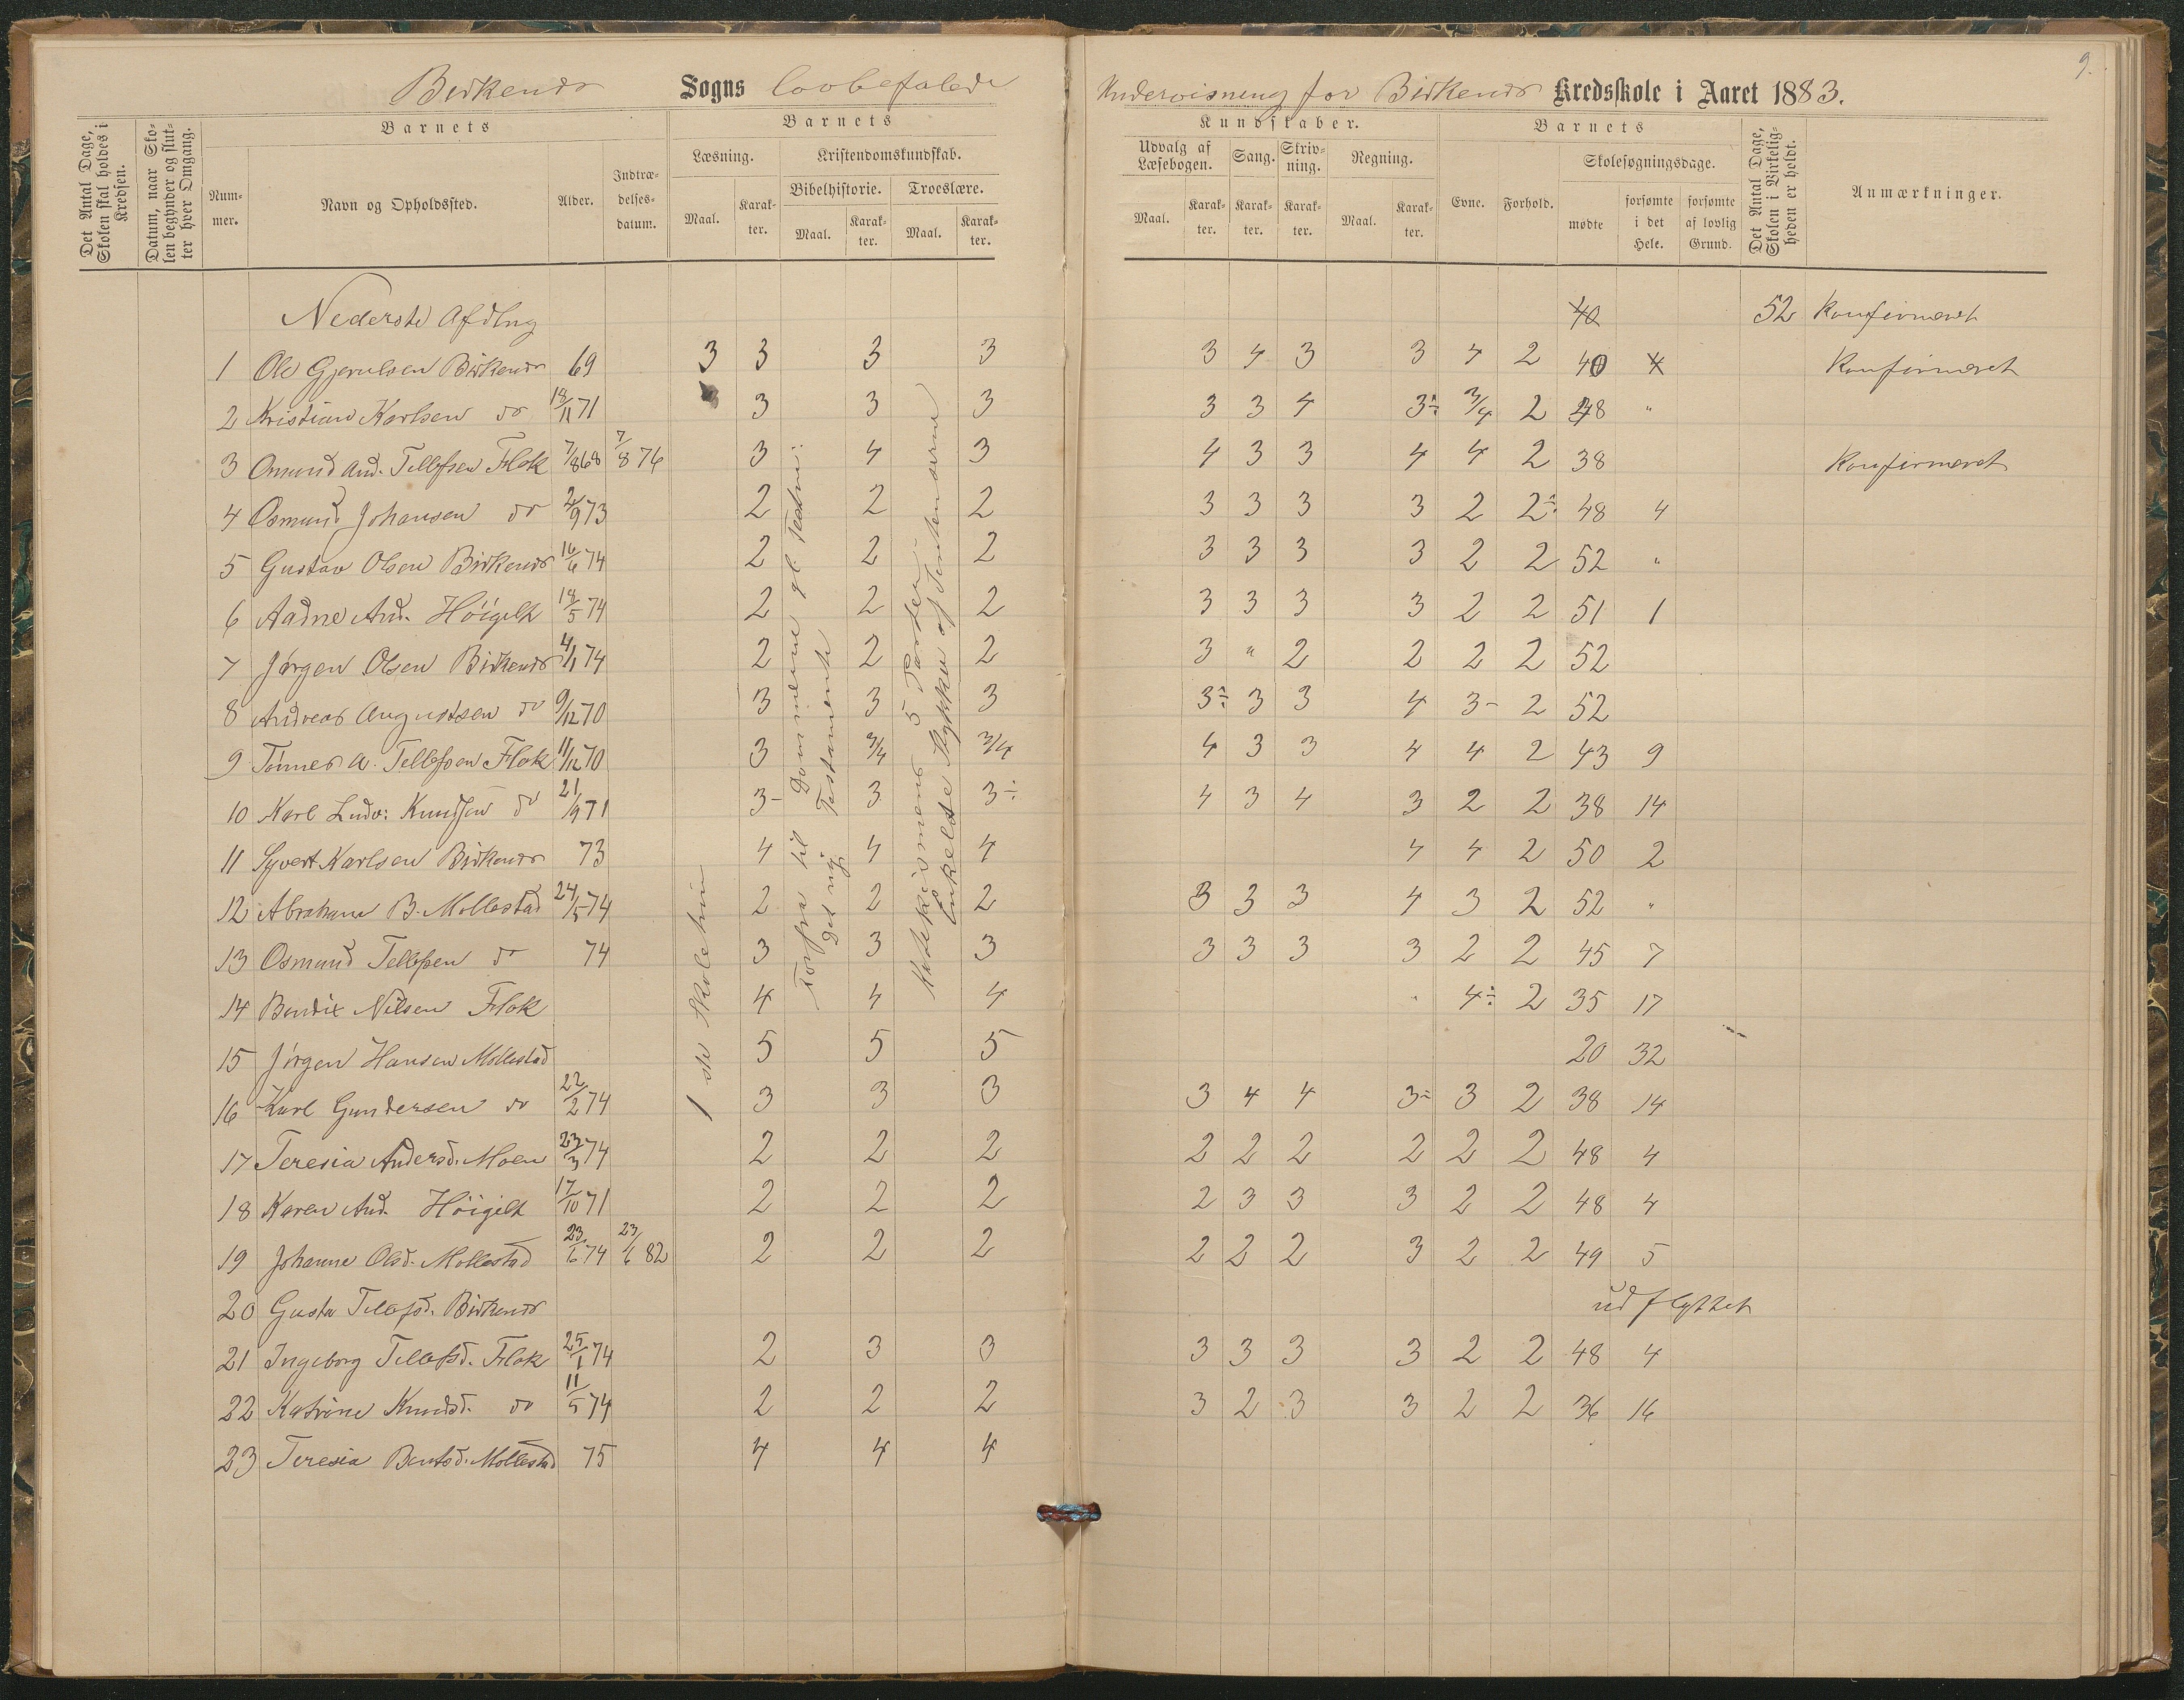 Birkenes Sogns lovbefalede Undervisning for Birkenes Kredsskole i Aaret 1883.
9.
Det Antal Dage, Skolen skal holdes i Kredsen.
Datum, naar Skolen begynder og slutter hver Omgang.
Barnets
Nummer.
Navn og Opholdssted.
Alder.
Indtrædelsesdatum.
Barnets
Læsning.
Maal.
Karakter.
Kristendomskundskab.
Bibelhistorie.
Maal.
Karakter.
Troeslære.
Maal.
Karakter.
Kundskaber.
Udvalg af Læsebogen.
Maal.
Karakter.
Sang.
Karakter.
Skrivning.
Karakter.
Regning.
Maal.
Karakter.
Barnets
Evne.
Forhold.
Skolesøgningsdage.
mødte
forsømte i det Hele.
forsømte af lovlig Grund.
Det Antal Dage, Skolen i Virkeligheden er holdt.
Anmærkninger.
Nederste Afdlng 40 52 Konfirmeret
1 Ole Gjerulsen Birkenes 69 3 3 3 3 3 4 3 3 4 2 40 4 Konfirmeret
2 Kristian Karlsen do 18/11 71 3 3 3 3 3 4 3÷ 3/4 2 48 "
3 Osmund And. Tellefsen Flak 7/8 68 7/8 76 3 4 3 4 3 3 4 4 2 38 Konfirmeret
4 Osmund Johansen do 2/9 73 2 2 2 3 3 3 3 2 2÷ 48 4
5 Gustav Olsen Birkenes 16/6 74 2 2 2 3 3 3 3 2 2 52 "
6 Aadne And. Höigilt 18/5 74 2 2 2 3 3 3 3 2 2 51 1
7 Jörgen Olsen Birkenes 4/1 74 2 2 2 3 " 2 2 2 2 52
8 Andreas Augustsen do 9/12 70 3 3 3 3÷ 3 3 4 3- 2 52
9 Tönnes A. Tellefsen Flak 11/12 70 3 3/4 3/4 4 3 3 4 4 2 43 9
10 Karl Ludv: Knudsen do 21/9 71 3- 3 3÷ 4 3 4 3 2 2 38 14
11 Syvert Karlsen Birkenes 73 4 4 4 4 4 2 50 2
12 Abraham B. Mollestad 24/5 74 2 2 2 3 3 3 4 3 2 52 "
13 Osmund Tellefsen do 74 3 3 3 3 3 3 3 2 2 45 7
14 Bendix Nilsen Flak 4 4 4 4÷ 2 35 17
15 Jörgen Hansen Mollestad 5 5 5 20 32
16 Karl Gundersen do 22/2 74 3 3 3 3 4 4 3÷ 3 2 38 14
17 Teresia Andersd. Moen 23/3 74 2 2 2 2 2 2 2 2 2 48 4
18 Karen And. Höigilt 17/10 71 2 2 2 2 3 3 3 2 2 48 4
19 Johanne Olsd. Mollestad 23/6 74 23/6 82 2 2 2 2 2 2 3 2 2 49 5
20 Gusta Tellefsd. Birkenes udflyttet
21 Ingeborg Tellefsd. Flak 25/1 74 2 3 3 3 3 3 3 2 2 48 4
22 Katrine Knudsd. do 11/5 74 2 2 2 3 2 3 3 2 2 36 16
23 Teresia Bentsd. Mollestad 75 4 4 4
1 ste Skoletrin
Forfra til Dommerne gl. Testm: Det nye Testamente
Katekismens 5 Parter Enkelte Stykker af